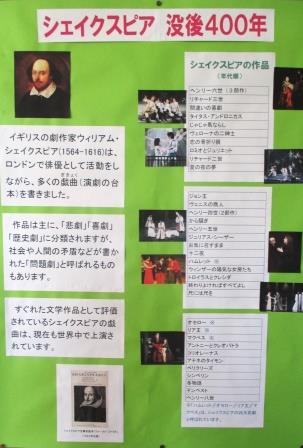 シェイクスピア 没後400年
イギリスの劇作家ウィリアム・
シェイクスピア(1564-1616)は、
ロンドンで俳優として活動をし
ながら、多くの戯曲(演劇の台
ぎきょく
本)を書きました。
作品は主に、「悲劇」「喜劇」
「歴史劇」に分類されますが、
社会や人間の矛盾などが書か
れた「問題劇」と呼ばれるものも
あります。
すぐれた文学作品として評価
されているシェイクスピアの戯
曲は、現在も世界中で上演さ
れています。
シェイクスピアの作品
(年代順)
ヘンリー六世(3部作)
リチャード三世
間違いの喜劇
タイタス・アンドロニカス
じゃじゃ馬ならし
ヴェローナの二紳士
恋の骨折り損
ロミオとジュリエット
リチャード二世
夏の夜の夢
ジョン王
ヴェニスの商人
ヘンリー四世(2部作)
から騒ぎ
ヘンリー五世
ジュリアス・シーザー
お気に召すまま
十二夜
ハムレット ※
ウィンザーの陽気な女房たち
トロイラスとクレシダ
終わりよければすべてよし
尺には尺を
オセロー ※
リア王 ※
マクベス ※
アントニーとクレオパトラ
コリオレーナス
アテネのタイモン
ペリクリーズ
シンベリン
冬物語
テンペスト
ヘンリー八世